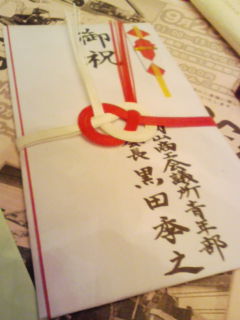 御祝
商工会議所青年部
会長 黒田季之